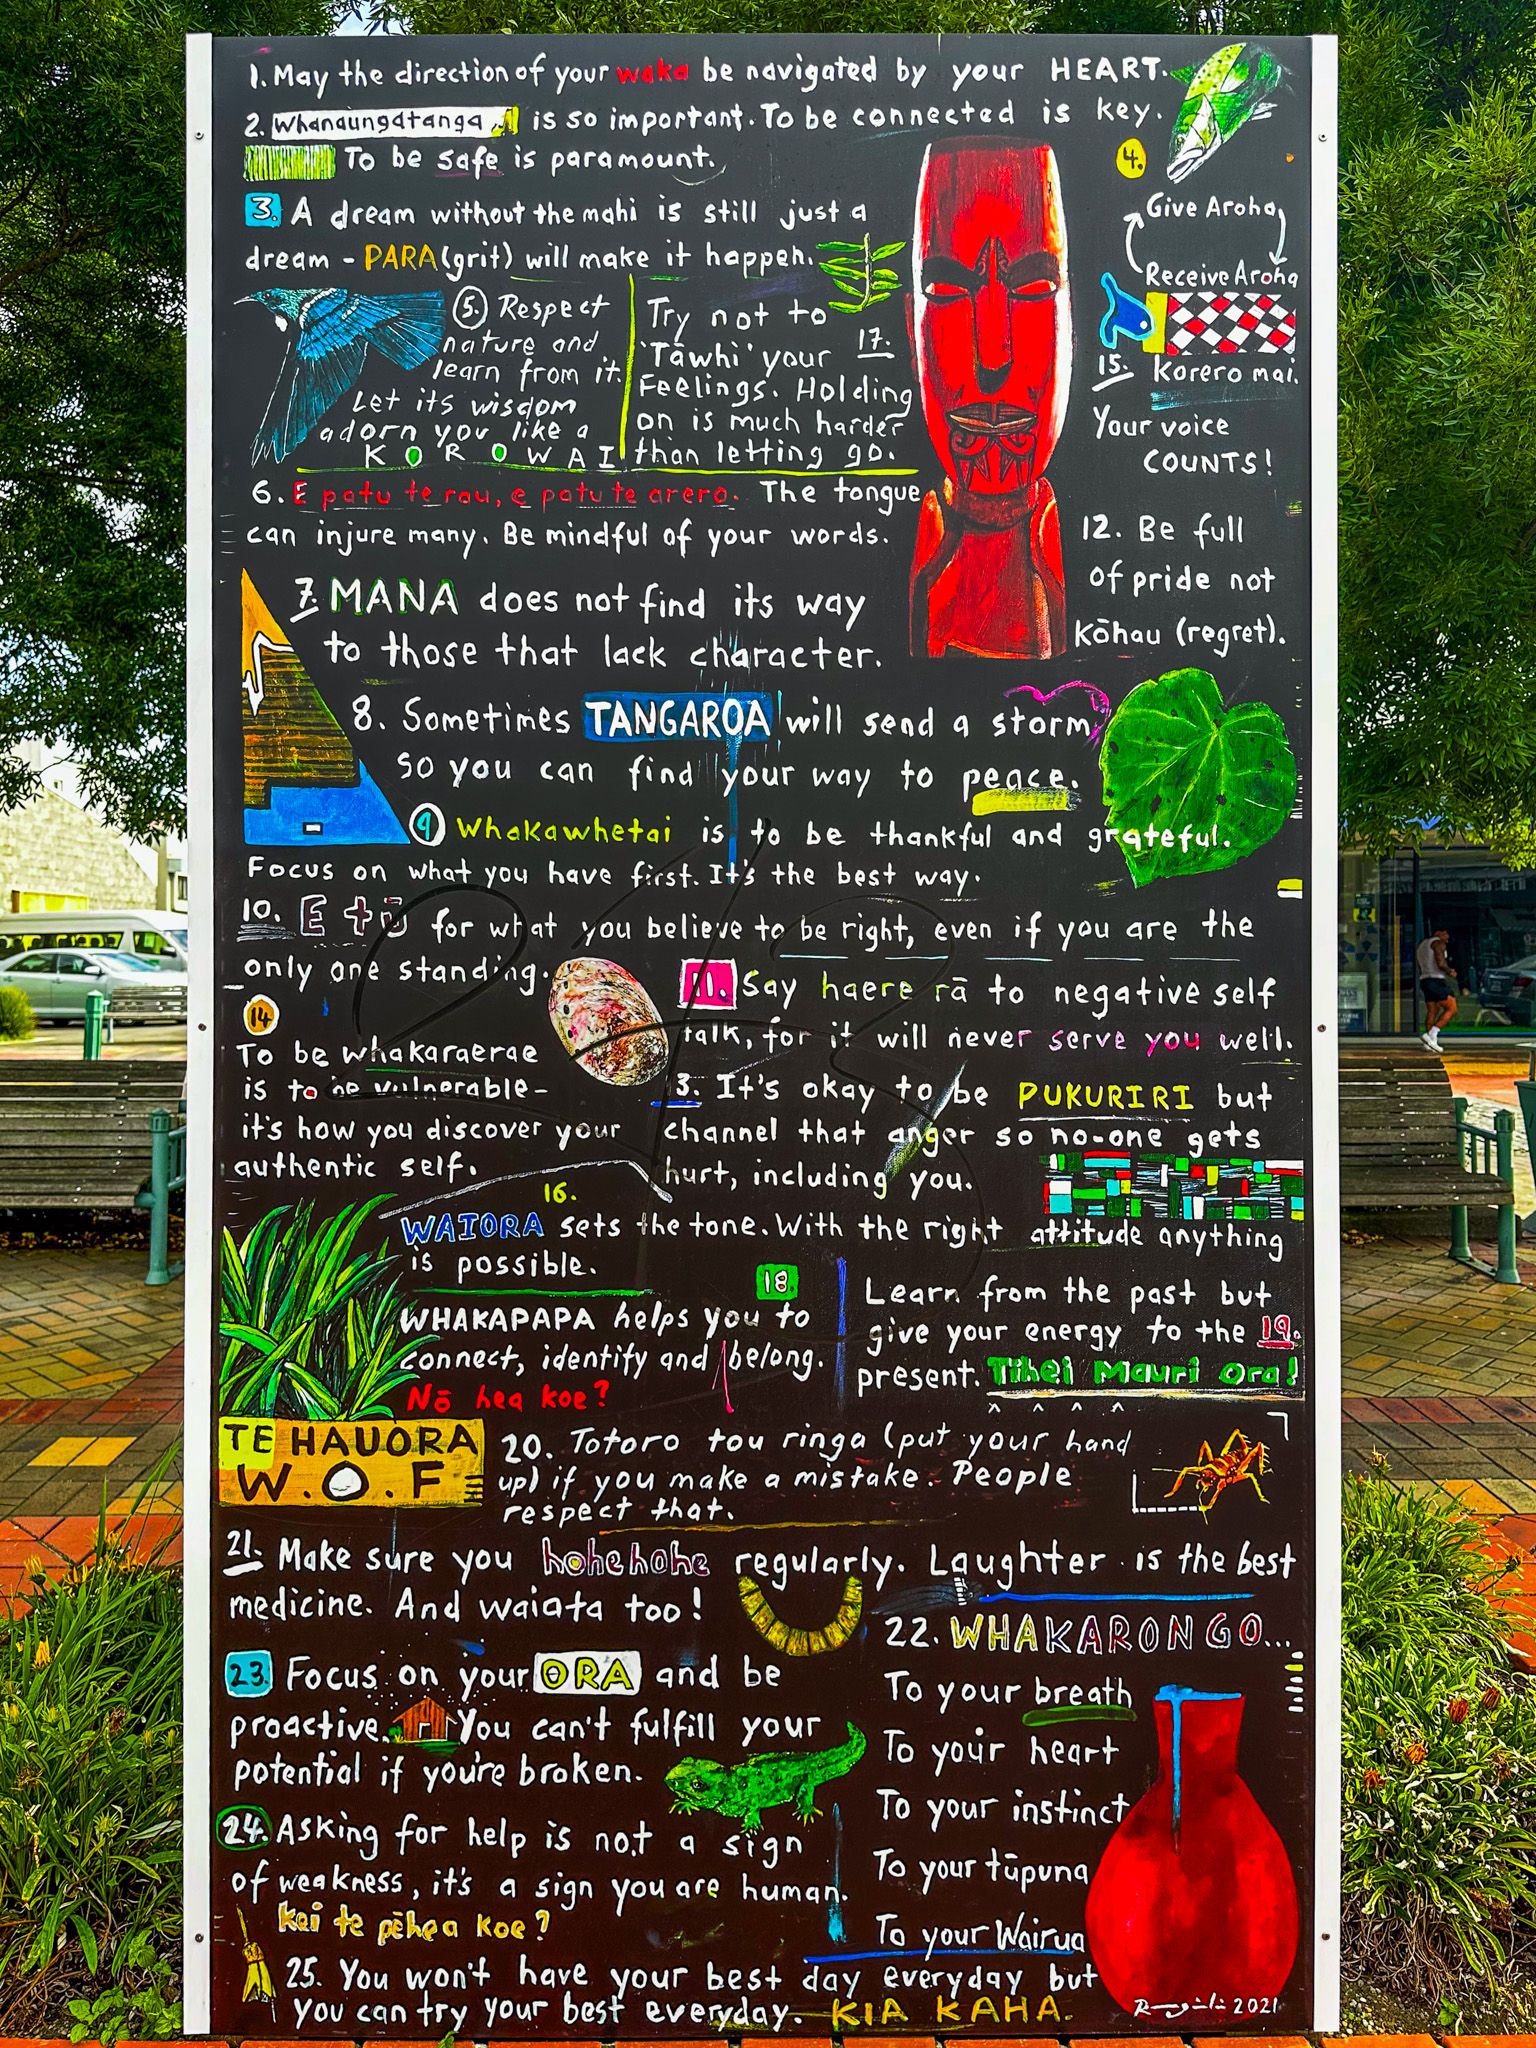 1. May the direction of your waka be navigated by your HEART.
2. Whanaungatanga is so important. To be connected is key.
To be safe is paramount.
3. A dream without the mahi is still just a
dream - PARA (grit) will make it happen.
4.
Give Aroha
Receive Aroha
5. Respect
nature and
learn from it.
Let its wisdom
adorn you like a
KOROWAI
Try not to
'Tāwhi' your 17.
Feelings. Holding
on is much harder
than letting go.
15. Korero mai.
Your voice
COUNTS!
6. E patu te rau, e patu te arero. The tongue
can injure many. Be mindful of your words.
12. Be full
of pride not
Kōhau (regret).
7. MANA does not find its way
to those that lack character.
8. Sometimes TANGAROA will send a storm
so you can find your way to peace.
9 Whakawhetai is to be thankful and grateful.
Focus on what you have first. It's the best way.
10. E tū for what you believe to be right, even if you are the
only one standing.
11. Say haere rā to negative self
talk, for it will never serve you well.
14
To be whakaraerae
is to be vulnerable-
it's how you discover your
authentic self.
3. It's okay to be PUKURIRI but
channel that anger so no-one gets
hurt, including you.
16.
WAIORA sets the tone. With the right attitude anything
is possible.
18
WHAKAPAPA helps you to
connect, identify and belong.
Nō hea koe?
Learn from the past but
give your energy to the 19.
present. Tihei Mauri Ora!
TE HAUORA
W.O.F
20. Totoro tou ringa (put your hand
up) if you make a mistake. People
respect that.
21. Make sure you hohehohe regularly. Laughter is the best
medicine. And waiata too!
22. WHAKARONGO...
To your breath
To your heart
To your instinct
To your tūpuna
To your Wairua
23. Focus on your ORA and be
proactive. You can't fulfill your
potential if you're broken.
24. Asking for help is not a sign
of weakness, it's a sign you are human.
kei te pēhea koe?
25. You won't have your best day everyday but
you can try your best everyday. KIA KAHA.
2021